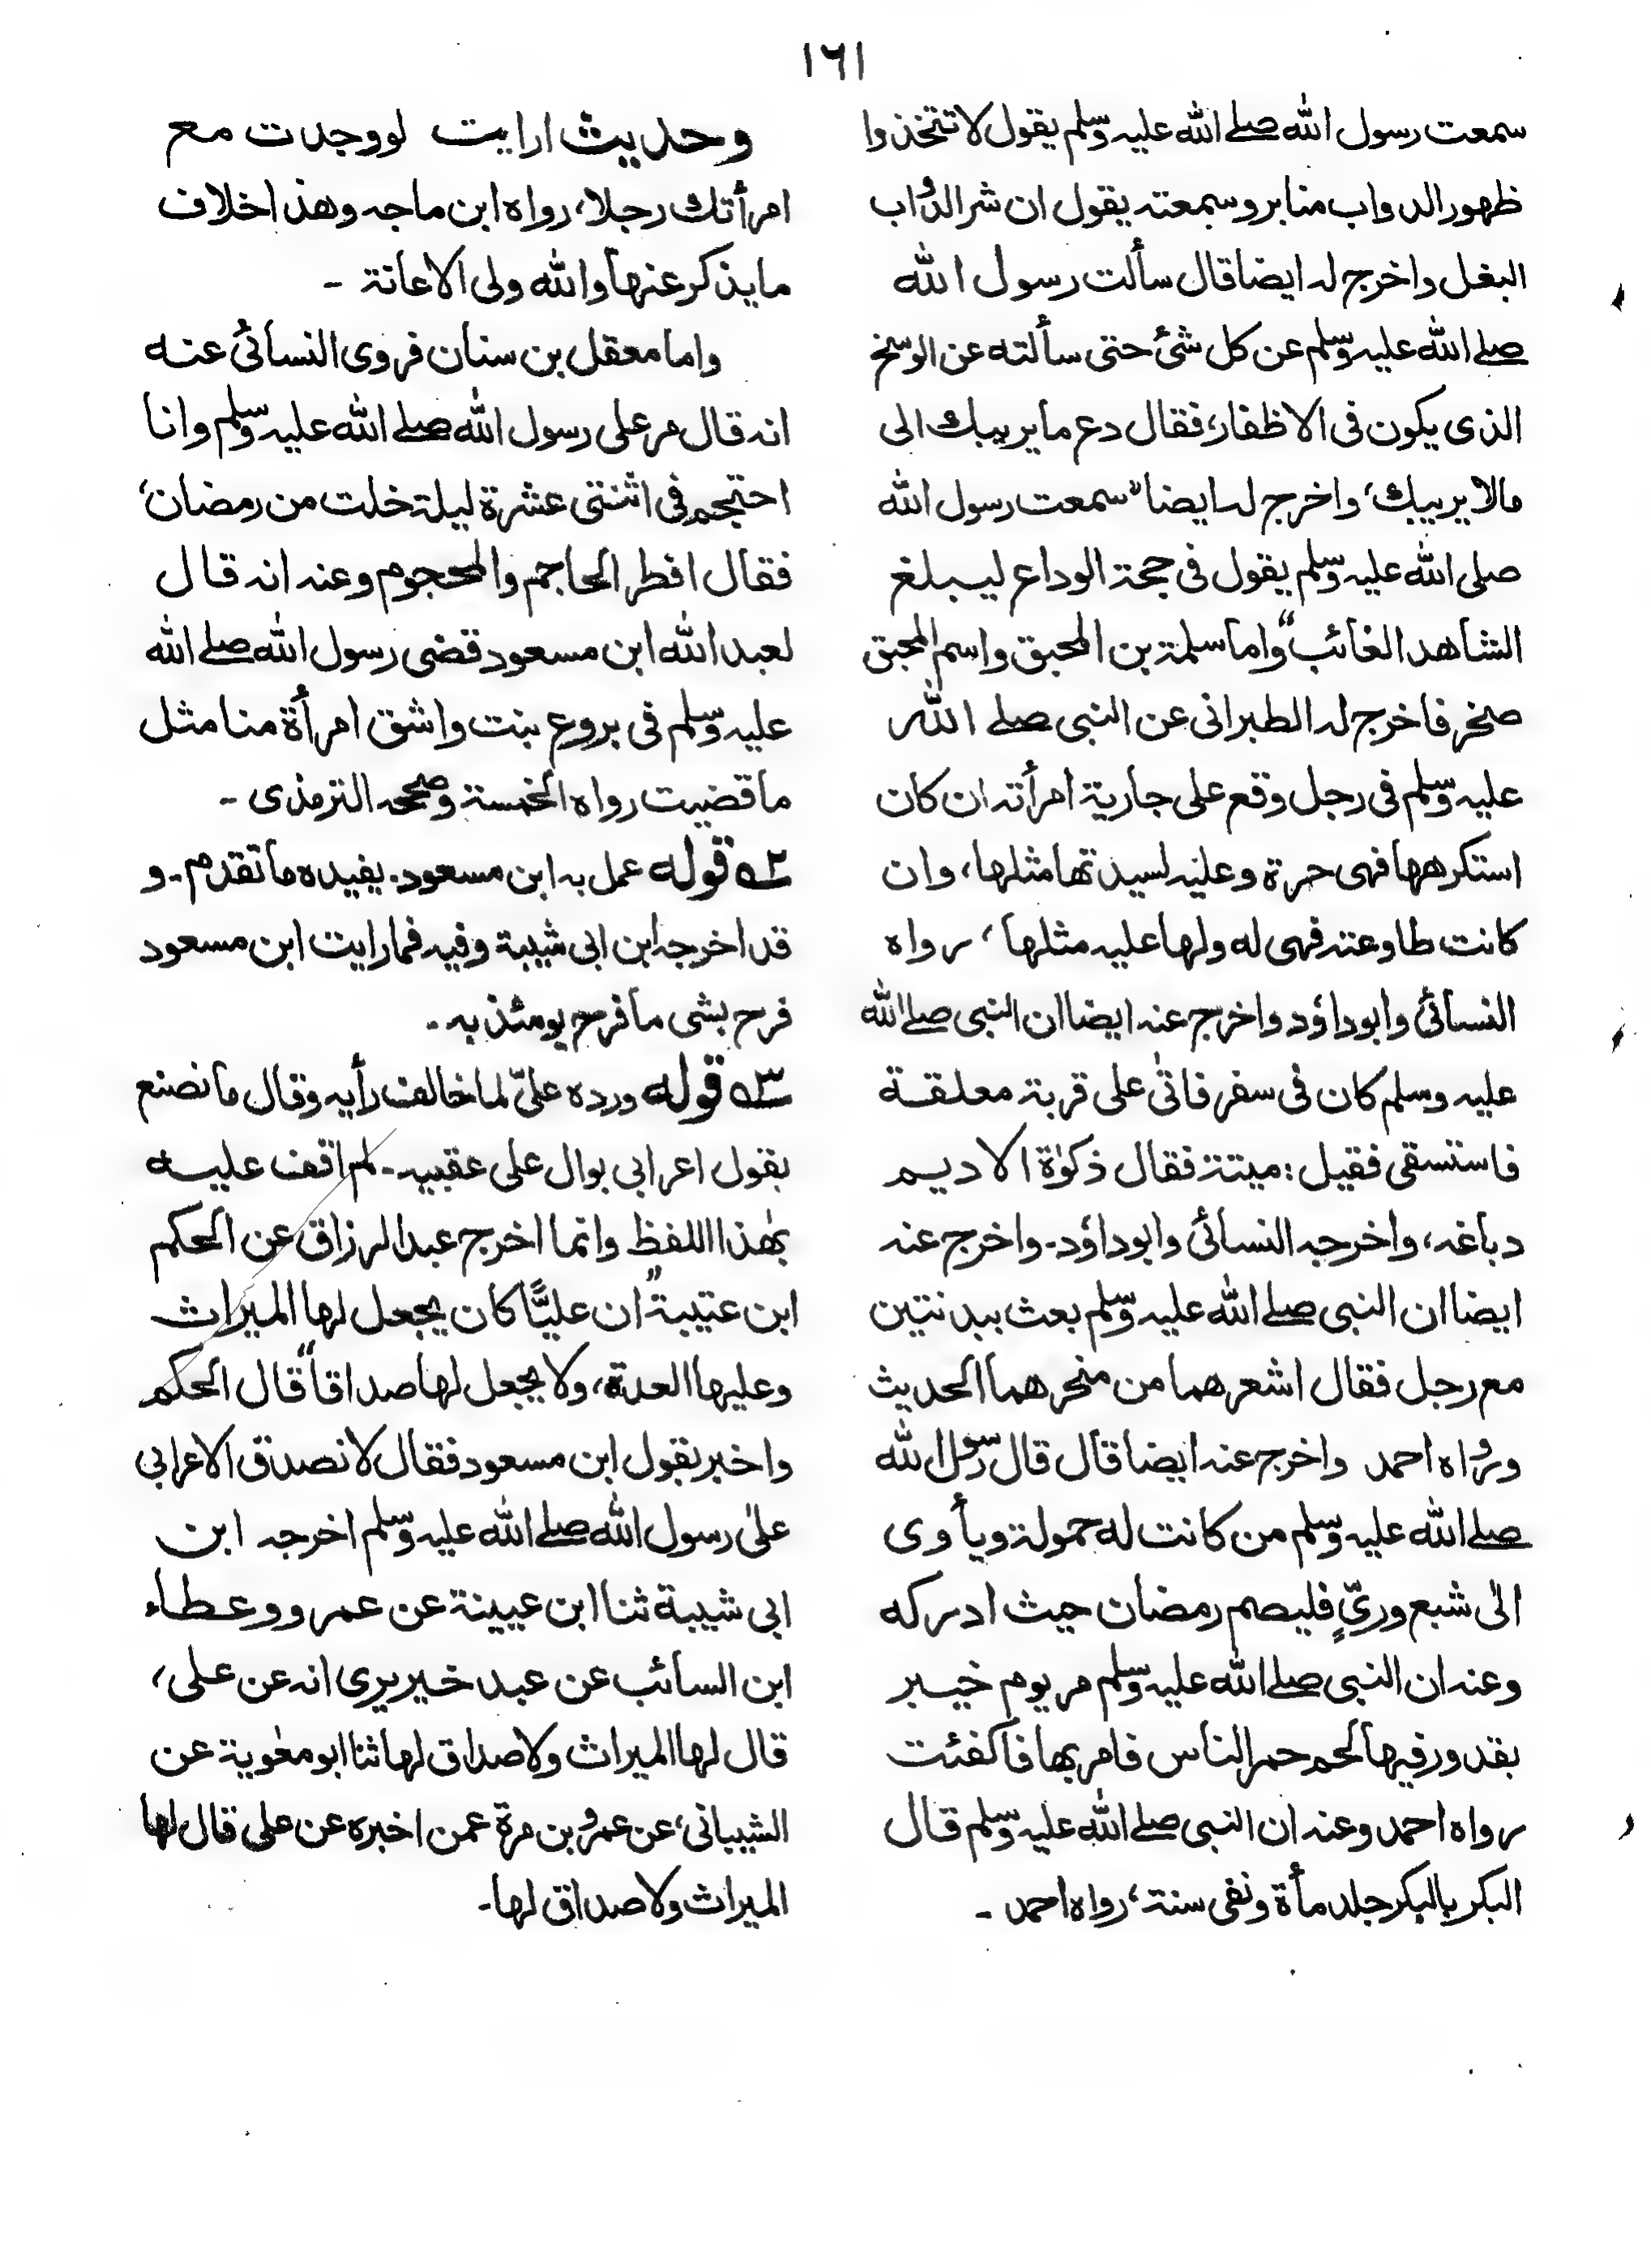 ١٦١
سمعت رسول الله صلے الله عليه وسلم يقول لا تتخذوا
ظهور الدواب منابر وسمعته يقول ان شر الدواب
البغل واخرج له ايضا قال سألت رسول الله
صلے الله عليه وسلم عن كل شئ حتى سألته عن الوسخ
الذى يكون فى الاظفار، فقال دع ما يريبك الى
مالا يريبك، واخرج له ايضا "سمعت رسول الله
صلى الله عليه وسلم يقول فى حجة الوداع ليبلغ
الشاهد الغائب" واما سلمة بن المحبق واسم المحبق
صخر فاخرج له الطبرانى عن النبى صلے الله
عليه وسلم فى رجل وقع على جارية امرأته ان كان
استكرهها فهى حرة وعليه لسيدتها مثلها، وان
كانت طاوعته فهى له ولها عليه مثلها، رواه
النسائى وابوداؤد واخرج عنه ايضا ان النبى صلے الله
عليه وسلم كان فى سفر فاتٰى على قربة معلقة
فاستسقى فقيل: ميتة فقال ذكوٰة الاديم
دباغه، واخرجه النسائى وابوداؤد۔ واخرج عنه
ايضا ان النبى صلے الله عليه وسلم بعث ببدنتين
مع رجل فقال اشعرهما من منحرهما الحديث
ورواه احمد واخرج عنه ايضا قال قال رسول الله
صلے الله عليه وسلم من كانت له حمولة ويأوى
الٰى شبع وريٍّ فليصم رمضان حيث ادركه
وعنه ان النبى صلے الله عليه وسلم مر يوم خيبر
بقدور فيها لحم حمر الناس فامر بها فاكفئت
رواه احمد وعنه ان النبى صلے الله عليه وسلم قال
البكر بالبكر جلد مأة ونفى سنة، رواه احمد ۔
وحديث ارايت لووجدت مع
امرأتك رجلا، رواه ابن ماجه وهذا خلاف
ما يذكر عنها والله ولى الاعانة ۔
واما معقل بن سنان فروى النسائى عنه
انه قال مر على رسول الله صلے الله عليه وسلم وانا
احتجم فى اثنتى عشرة ليلة خلت من رمضان،
فقال افطر الحاجم والمحجوم وعنه انه قال
لعبدالله ابن مسعود قضى رسول الله صلے الله
عليه وسلم فى بروع بنت واشق امرأة منا مثل
ما قضيت رواه الخمسة وصححه الترمذى ۔
٢ه قوله عمل به ابن مسعود۔ يفيده ما تقدم۔ و
قد اخرجه ابن ابى شيبة وفيه فما رايت ابن مسعود
فرح بشى ما فرح يومئذ به ۔
٣ه قوله ورده علىّ لما خالف رأيه وقال ما نصنع
بقول اعرابى بوال على عقبيه۔ لم اقف عليه
بهٰذا اللفظ وانما اخرج عبدالرزاق عن الحكم
ابن عتيبة "ان عليًّا كان يجعل لها الميراث
وعليها العدة، ولا يجعل لها صداقا" قال الحكم
واخبر بقول ابن مسعود فقال لا نصدق الاعرابى
علٰى رسول الله صلے الله عليه وسلم اخرجه ابن
ابى شيبة ثنا ابن عيينة عن عمرو وعطاء
ابن السائب عن عبد خير يرى انه عن على،
قال لها الميراث ولا صداق لها ثنا ابو معٰوية عن
الشيبانى، عن عمرو بن مرة عمن اخبره عن على قال لها
الميراث ولا صداق لها۔